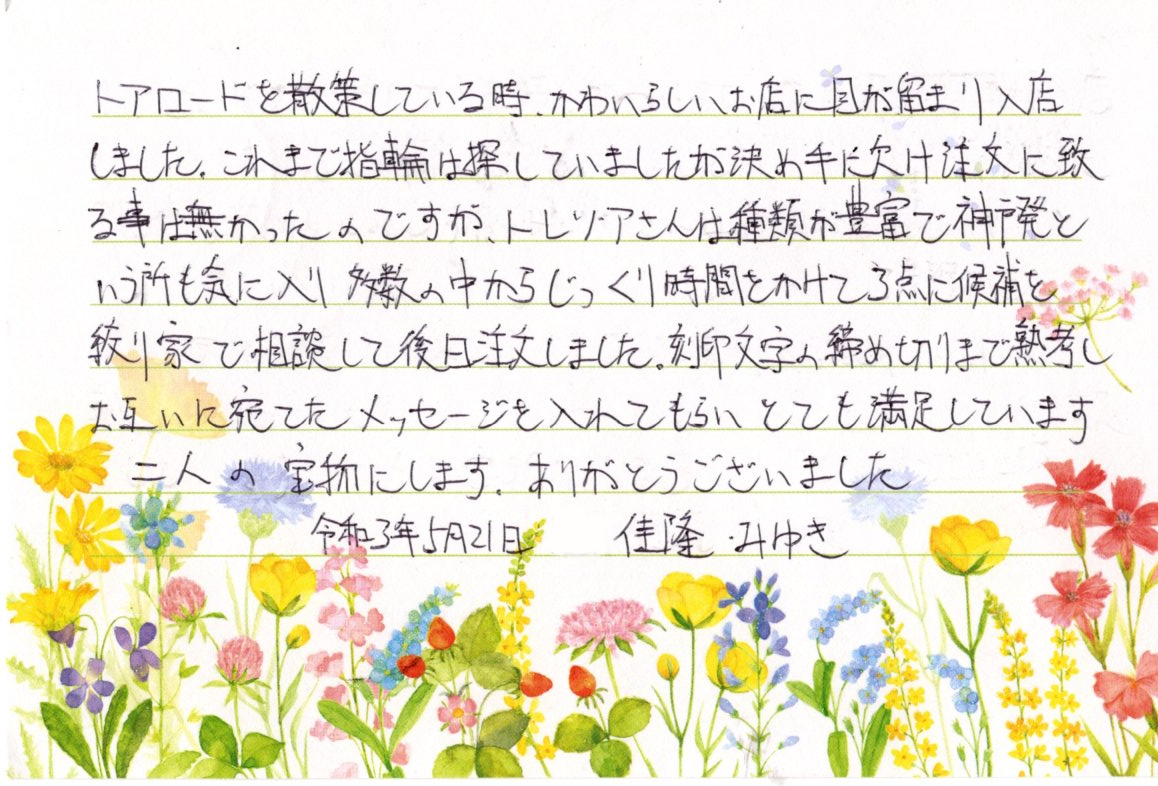 トアロードを散策している時、かわいらしいお店に目が留まり入店
しました。これまで指輪は探していましたが決め手に欠け注文に致
る事は無かったのですが、トレゾアさんは種類が豊富で神戸発と
いう所も気に入り 多数の中からじっくり時間をかけて3点に候補を
絞り家で相談して後日注文しました。刻印文字の締め切りまで熟考し
お互いに宛てたメッセージを入れてもらい とても満足しています
二人の宝物にします。ありがとうございました
令和3年5月21日 佳隆・みゆき